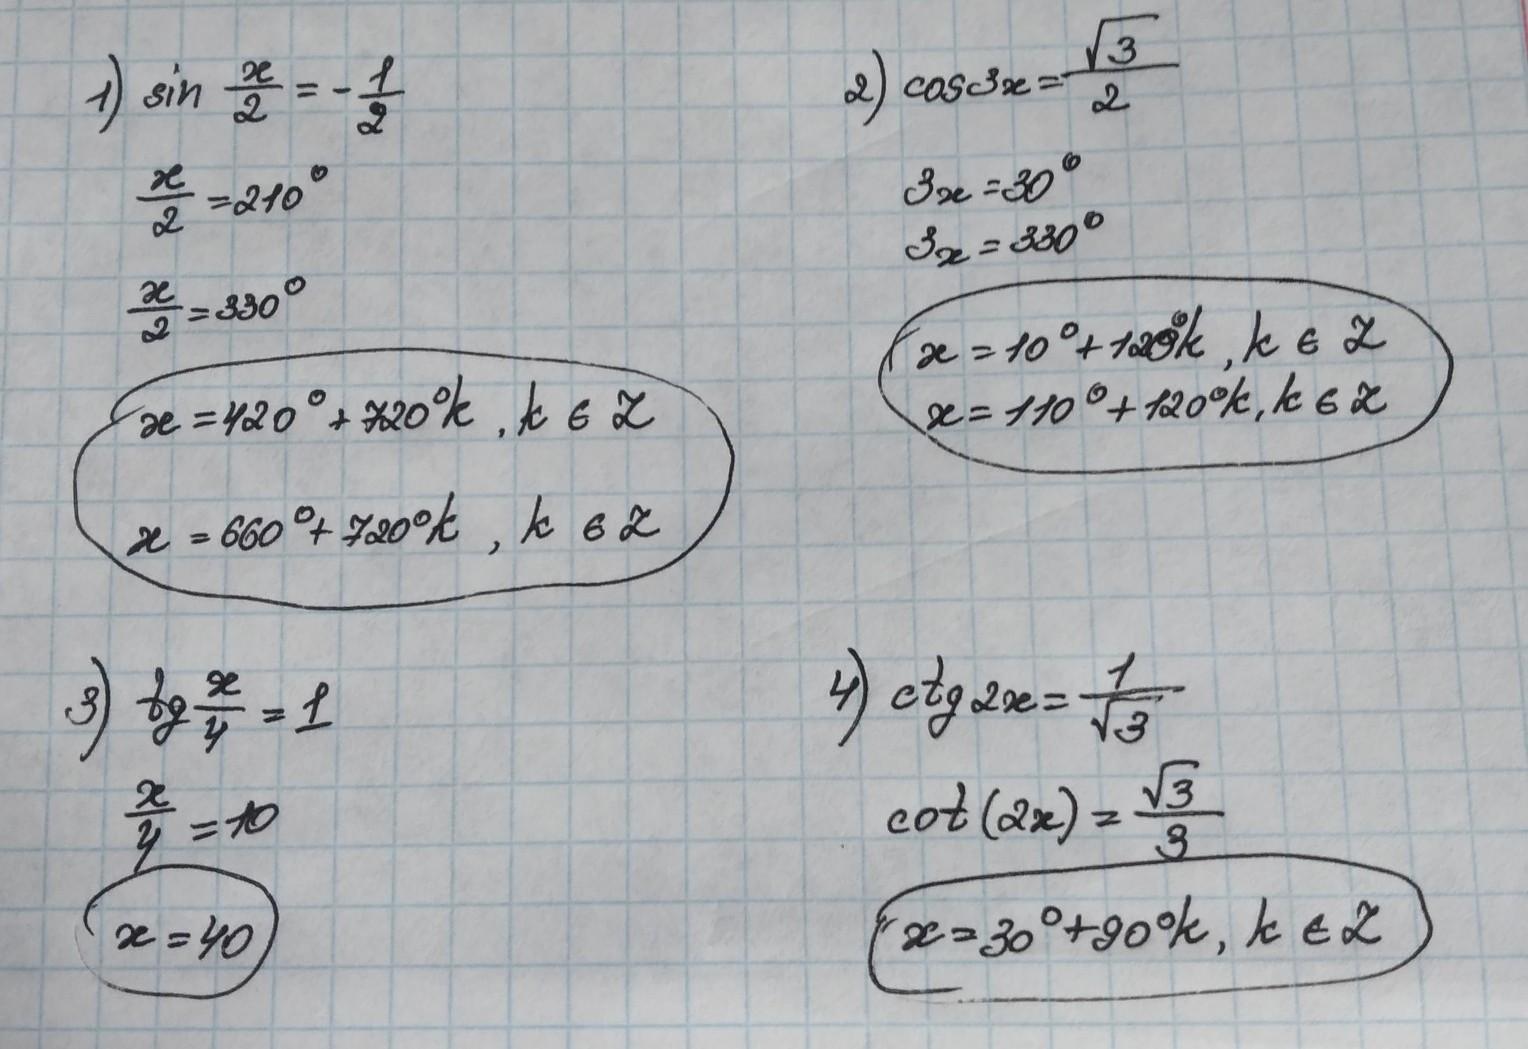 1) sin x/2 = -1/2
x/2 = 210°
x/2 = 330°
x = 420° + 720°k, k ∈ Z
x = 660° + 720°k, k ∈ Z
2) cos3x = √3/2
3x = 30°
3x = 330°
x = 10° + 120°k, k ∈ Z
x = 110° + 120°k, k ∈ Z
3) tg x/4 = 1
x/4 = 10
x = 40
4) ctg 2x = 1/√3
cot(2x) = √3/3
x = 30° + 90°k, k ∈ Z